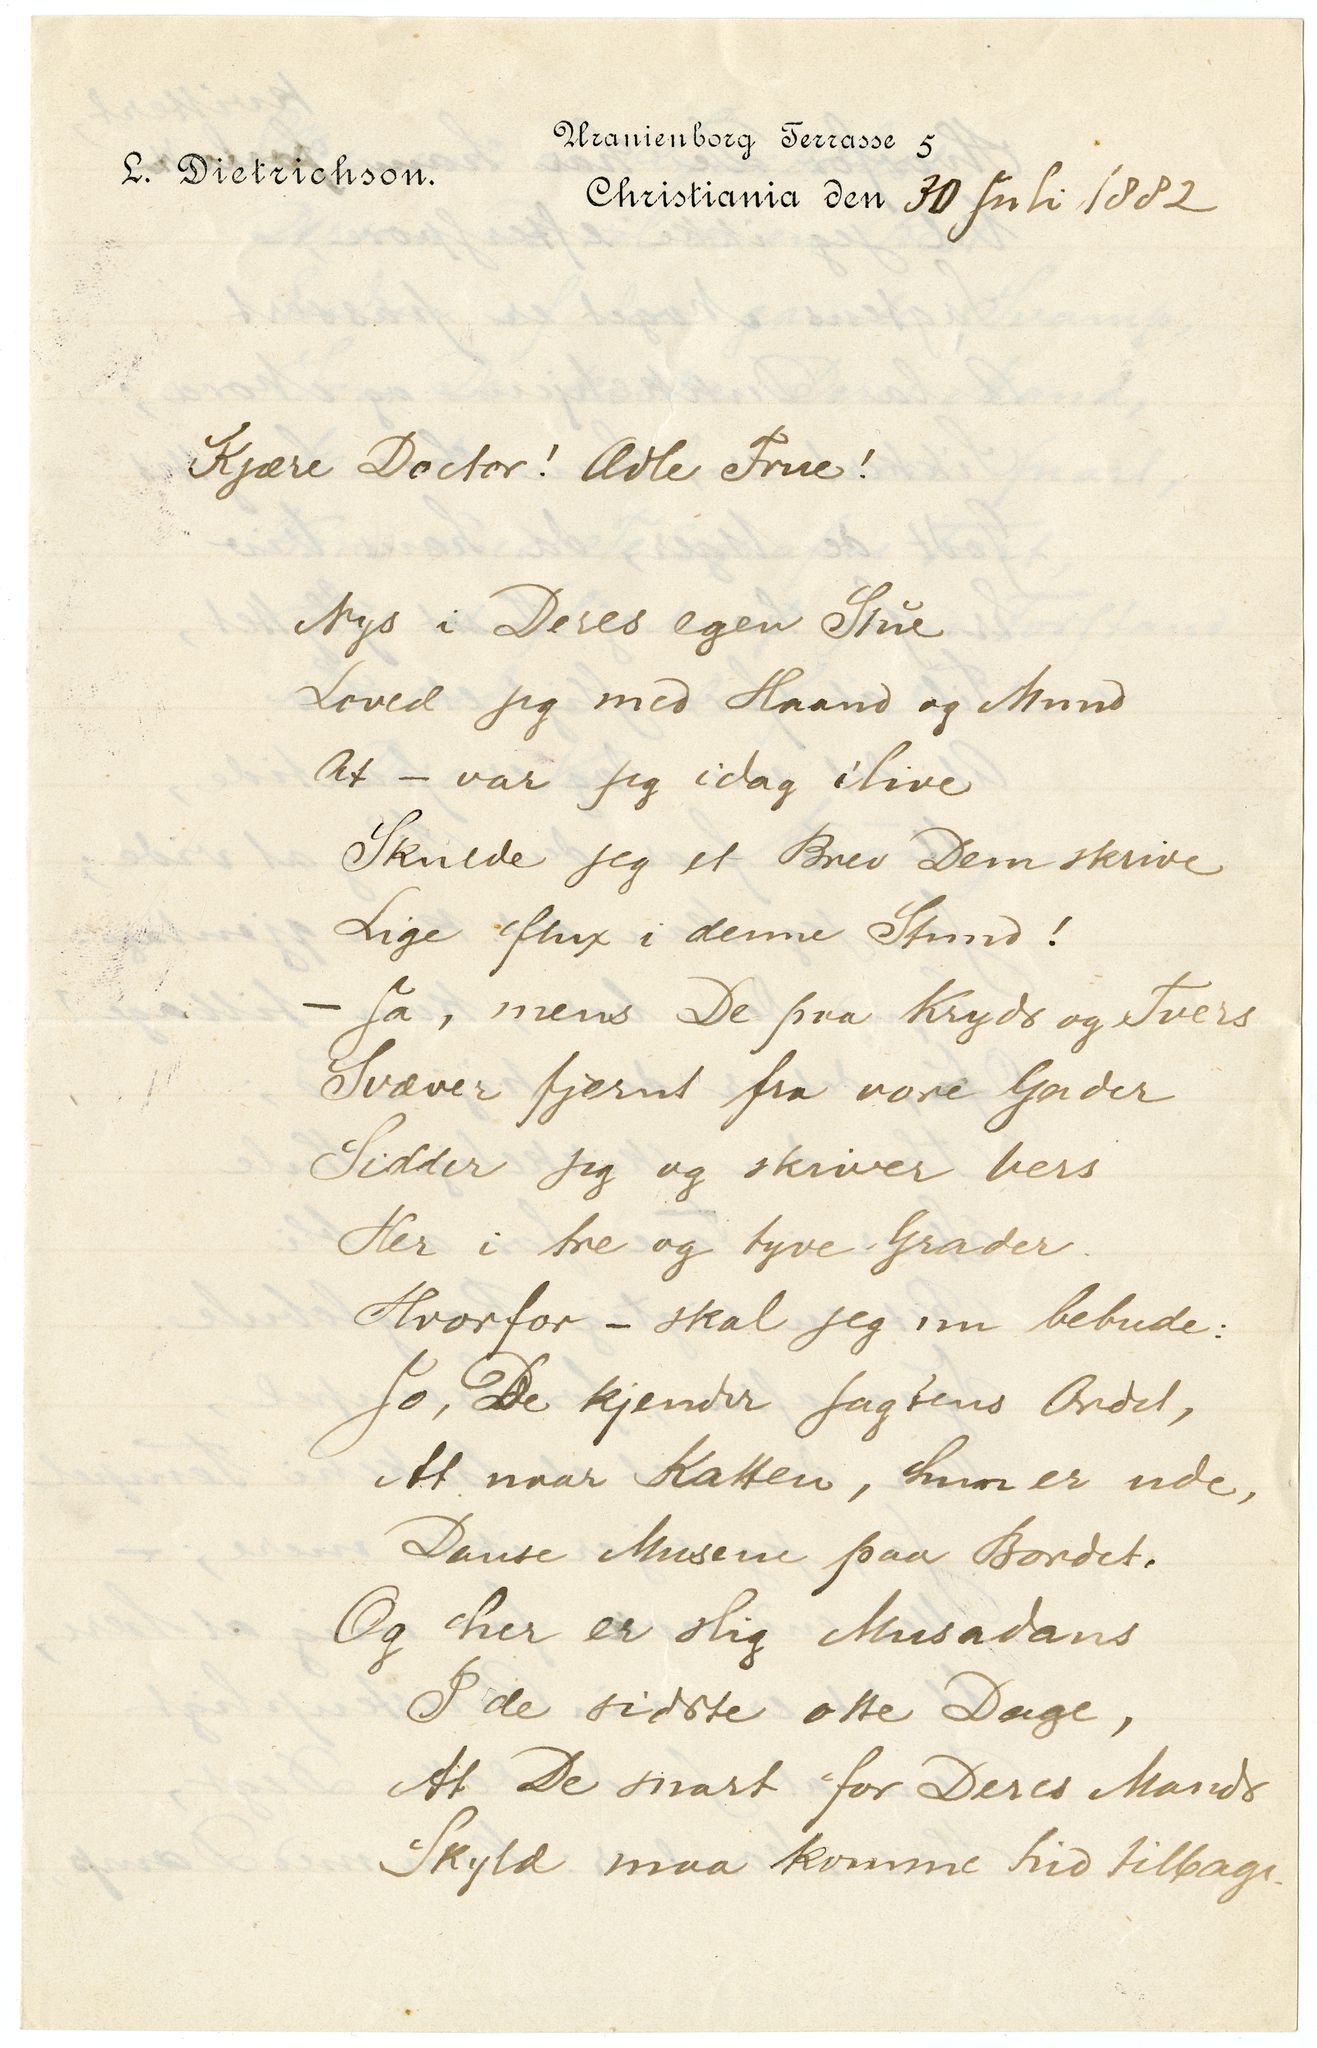 Uranienborg Terrasse 5
L. Dietrichson.
Christiania den 30 Juli 1882
Kjære Doctor! Ædle Frue!
Nys i Deres egen Stue
Loved jeg med Haand og Mund
At – var jeg idag ilive
Skulde jeg et Brev Dem skrive
Lige flux i denne Stund!
– Ja, mens De paa Kryds og Tvers
Svæver fjernt fra vore Gader
Sidder jeg og skriver Vers
Her i tre og tyve Grader.
Hvorfor – skal jeg nu bebude:
Jo, De kjender sagtens Ordet,
At naar Katten, hun er ude,
Danse Musene paa Bordet.
Og her er slig Musadans
I de sidste otte Dage,
At De snart for Deres Mands
Skyld maa komme hid tilbage.